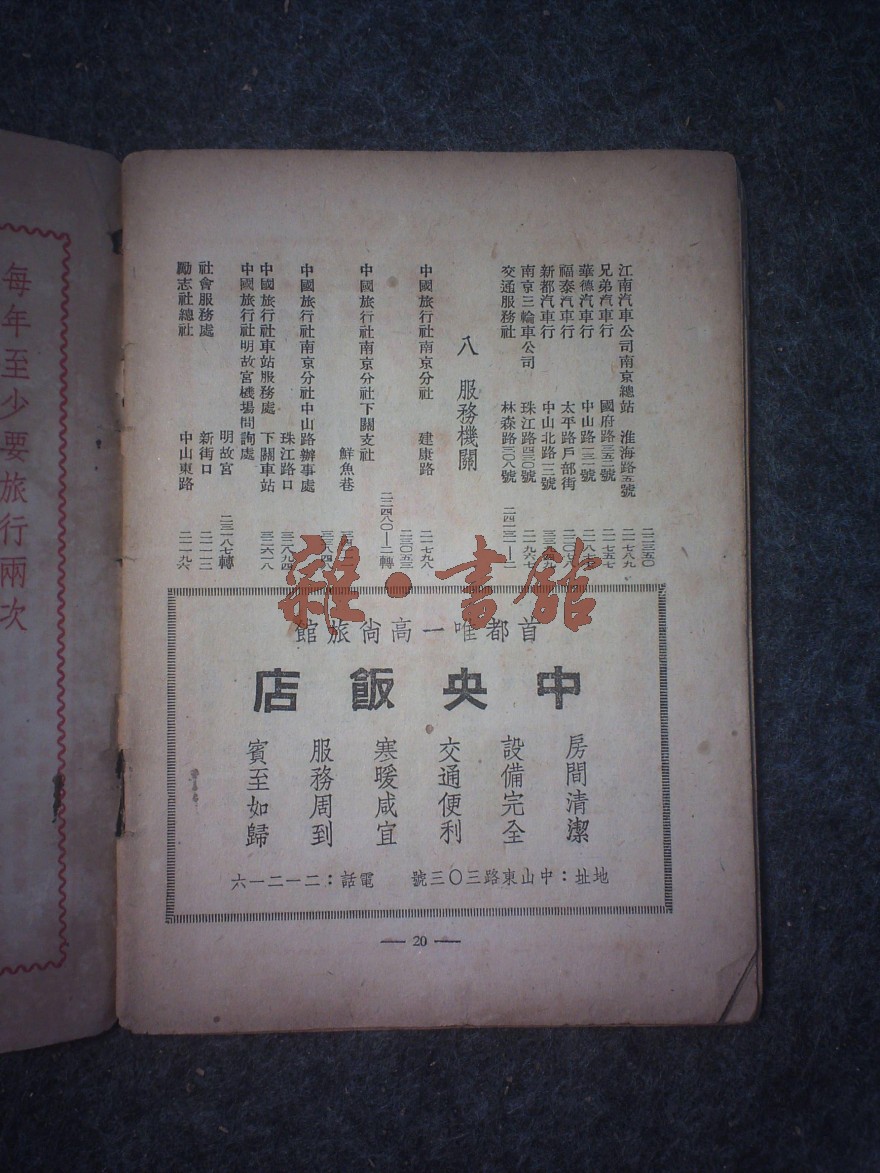 江南汽車公司南京總站 淮海路五號 二三三五〇
兄弟汽車行 國府路
華德汽車行 中山路一三一號
福泰汽車行 太平路戶部街
新都汽車行 中山北路三號
南京三輪車公司 珠江路
交通服務社 林森路
八 服務機關
中國旅行社南京分社 建康路 二一七九八
二三〇五三
二二四八〇—二轉
中國旅行社南京分社下關支社 鮮魚巷
中國旅行社南京分社中山路辦事處 珠江路口
中國旅行社車站服務處 下關車站 三二六一八
中國旅行社明故宮機場問詢處 明故宮 二三一八七轉
社會服務處 新街口 二一一一二
勵志社總社 中山東路 二一一九六
雜·書館
首都唯一高尚旅館
中央飯店
房間清潔
設備完全
交通便利
寒暖咸宜
服務周到
賓至如歸
地址：中山東路三〇三號 電話：二一二一六
— 20 —
每年至少要旅行兩次